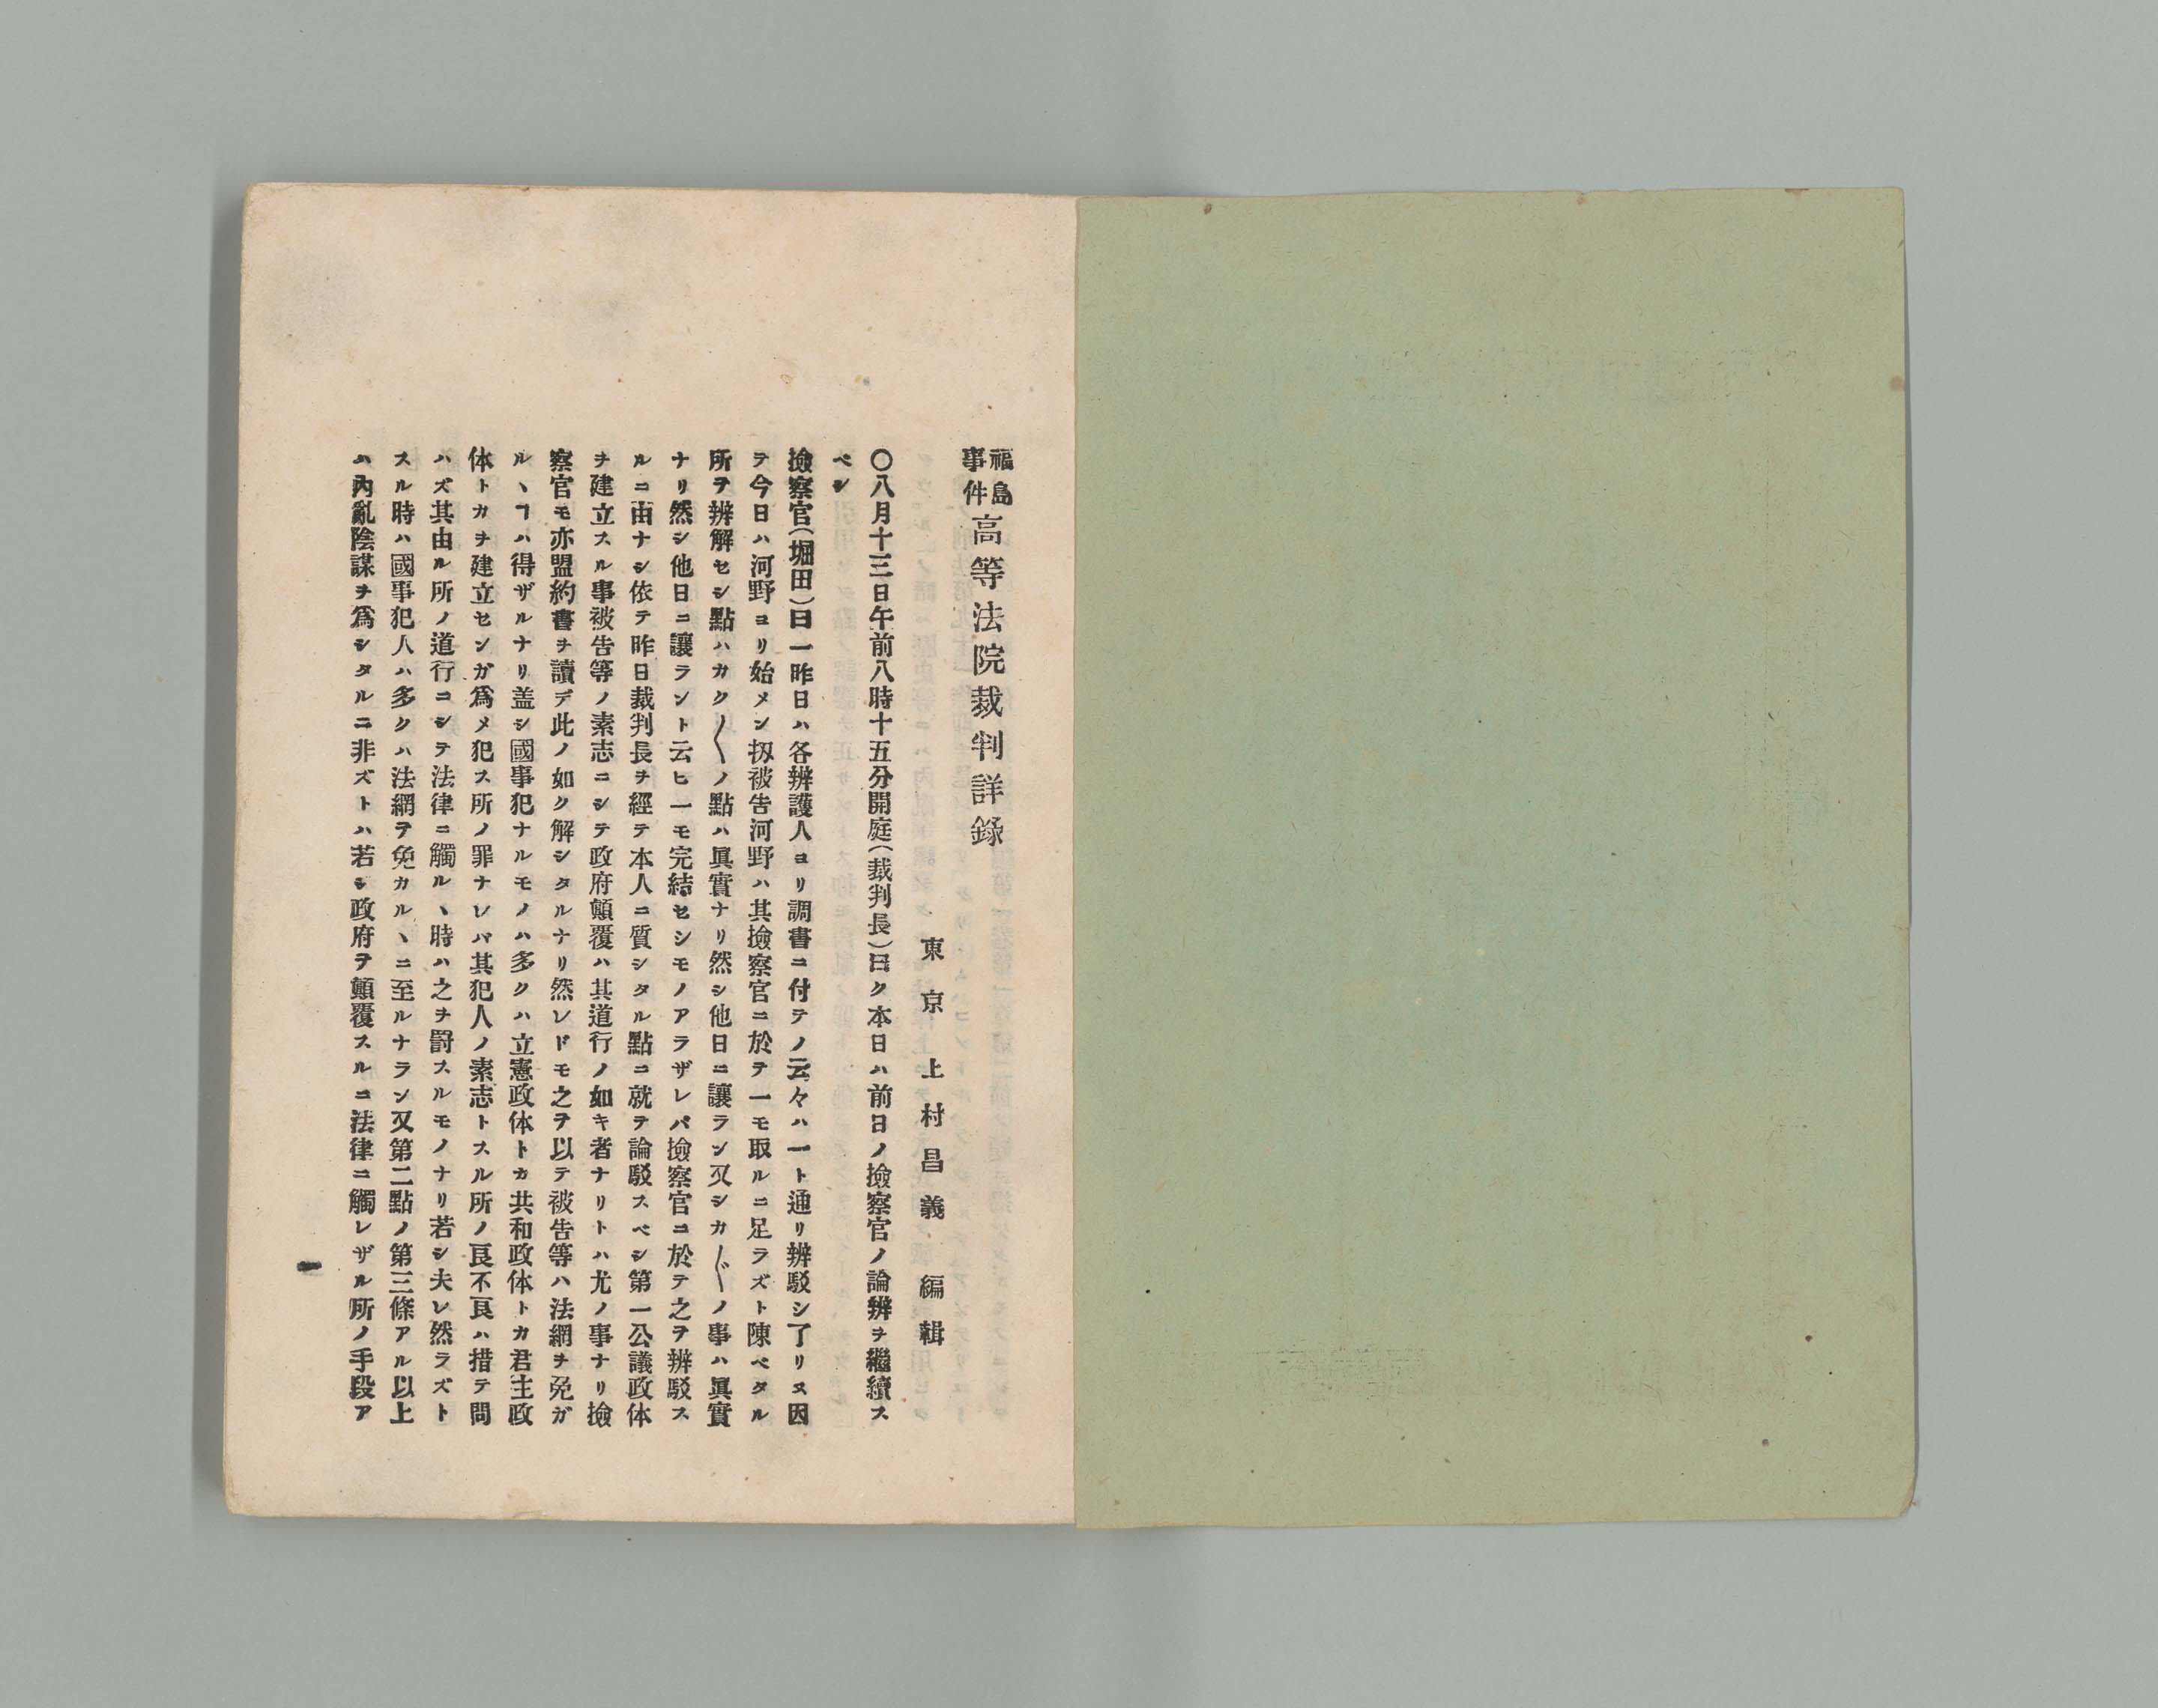 福島事件高等法院裁判詳錄
東京 上村昌義 編輯
〇八月十三日午前八時十五分開庭(裁判長)曰ク本日ハ前日ノ撿察官ノ論辨ヲ繼續ス
ベシ
撿察官(堀田)曰一昨日ハ各辨護人ヨリ調書ニ付テノ云々ハ一ト通リ辨駁シ了リヌ因
テ今日ハ河野ヨリ始メン扨被告河野ハ其撿察官ニ於テ一モ取ルニ足ラズト陳ベタル
所ヲ辨解セシ點ハカク〱ノ點ハ眞實ナリ然シ他日ニ讓ラン又シカ〲ノ事ハ眞實
ナリ然シ他日ニ讓ラント云ヒ一モ完結セシモノアラザレバ撿察官ニ於テ之ヲ辨駁ス
ルニ由ナシ依テ昨日裁判長ヲ經テ本人ニ質シタル點ニ就テ論駁スベシ第一公議政体
ヲ建立スル事被告等ノ素志ニシテ政府顚覆ハ其道行ノ如キ者ナリトハ尤ノ事ナリ撿
察官モ亦盟約書ヲ讀デ此ノ如ク解シタルナリ然レドモ之ヲ以テ被告等ハ法網ヲ免ガ
ルヽヿハ得ザルナリ盖シ國事犯ナルモノハ多クハ立憲政体トカ共和政体トカ君主政
体トカヲ建立センガ爲メ犯ス所ノ罪ナレバ其犯人ノ素志トスル所ノ良不良ハ措テ問
ハズ其由ル所ノ道行ニシテ法律ニ觸ルヽ時ハ之ヲ罸スルモノナリ若シ夫レ然ラズト
スル時ハ國事犯人ハ多クハ法網ヲ免カルヽニ至ルナラン又第二點ノ第三條アル以上
ハ內亂陰謀ヲ爲シタルニ非ズトハ若シ政府ヲ顚覆スルニ法律ニ觸レザル所ノ手段ア
一